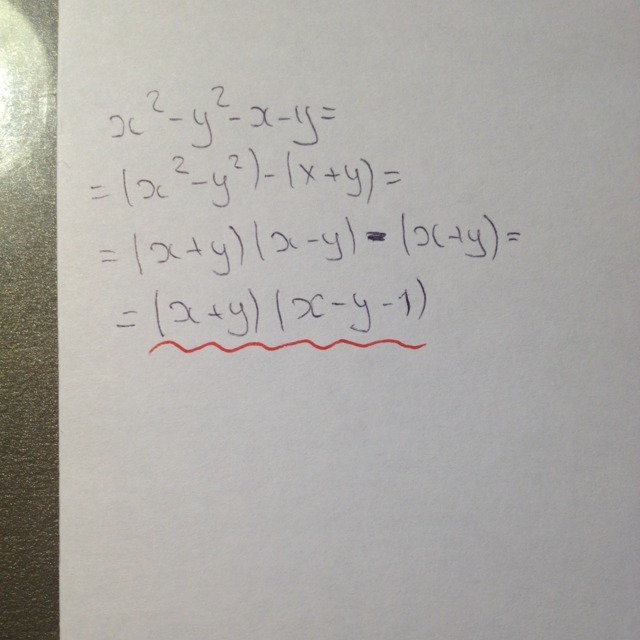 x²-y²-x-y=
=(x²-y²)-(x+y)=
=(x+y)(x-y)-(x+y)=
=(x+y)(x-y-1)